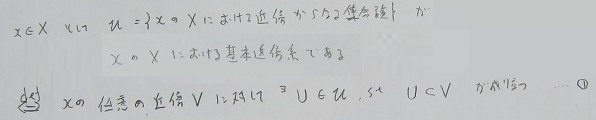 x∈X として 𝒰 = {xのXにおける近傍からなる集合族} が
xのXにおける基本近傍系である
def xの任意の近傍Vに対して ∃U∈𝒰, s.t. U⊂V が成り立つ … ①